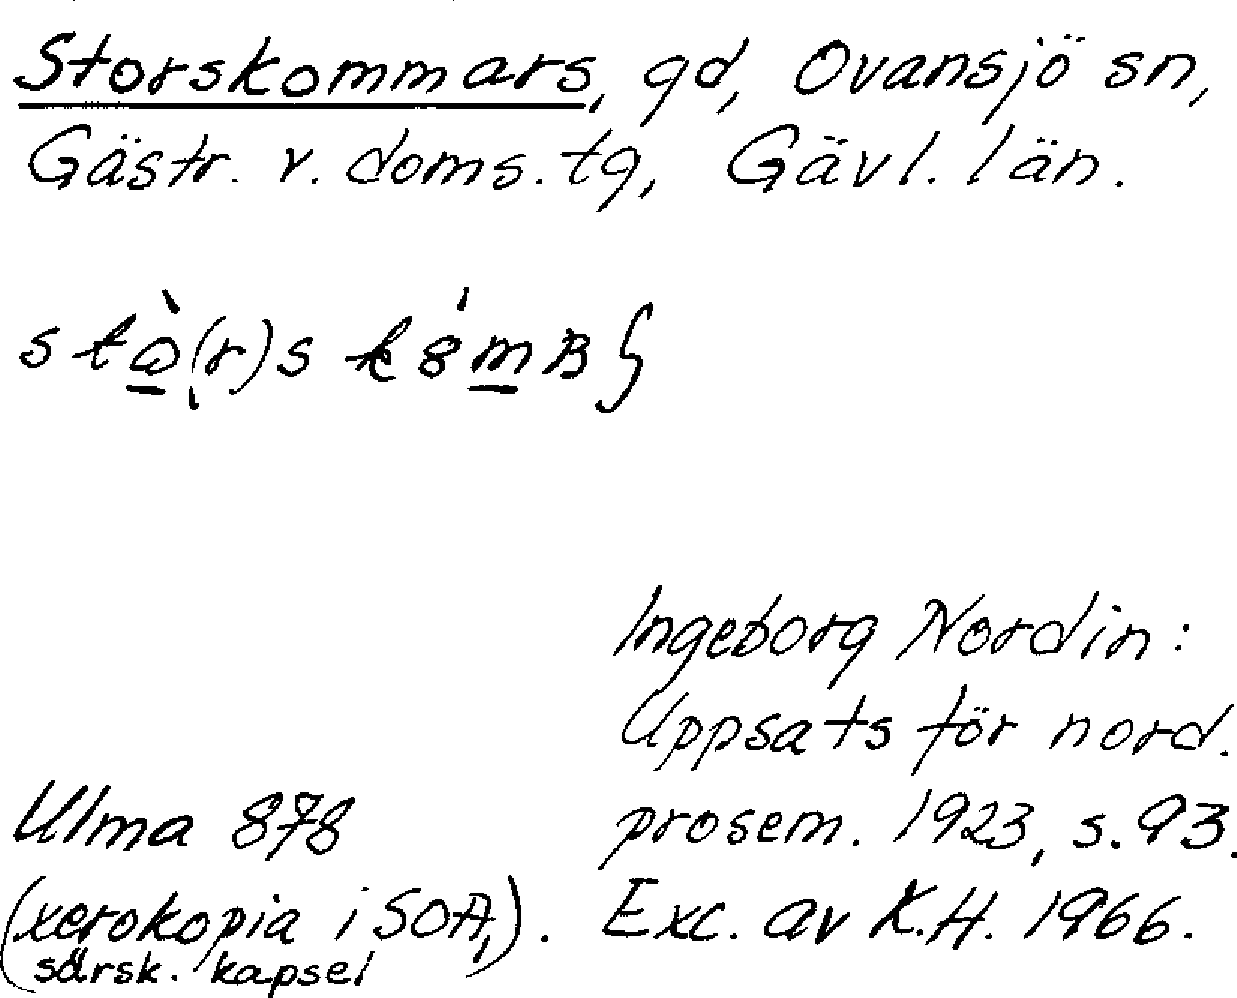 Storskommars, gd, Ovansjö sn,
Gästr. v. doms. tg, Gävl. län.
Ingeborg Nordin:
Uppsats för nord.
Ulma 878 prosem. 1923, s. 93.
(xerokopia i SOA, särsk. kapsel). Exc. av K.H. 1966.